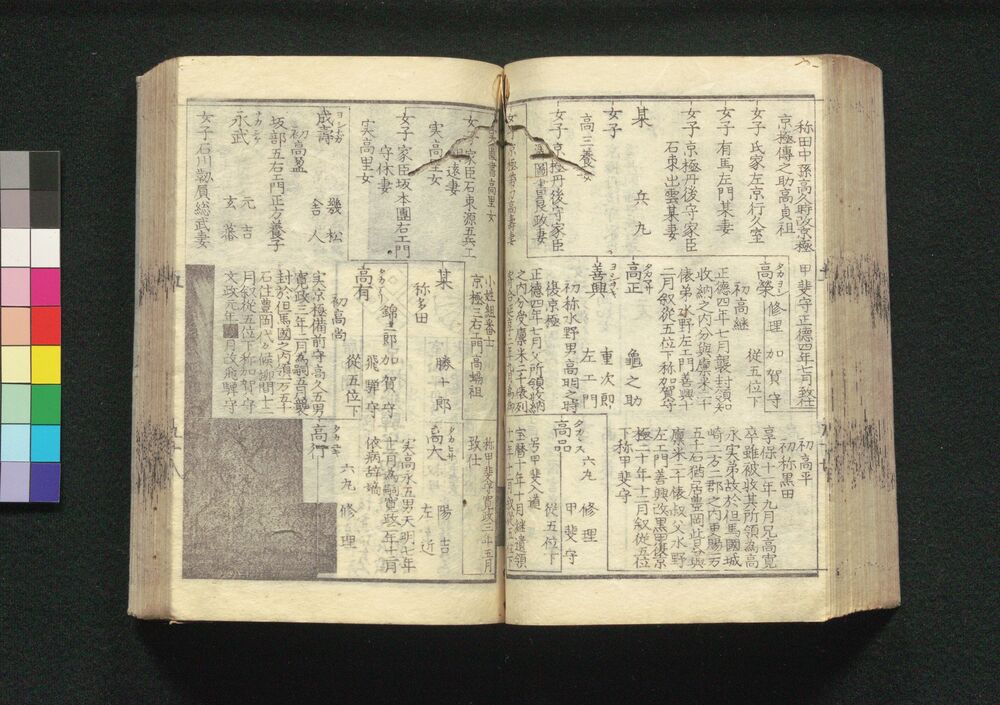 称田中孫高久時改京極
京極傳之助高貞祖
女子 氏家左京行久室
女子 有馬左門某妻
女子 京極丹後守家臣
石束出雲某妻
某 兵九
女子
高三養女
女子 京極丹後守家臣
甲斐守正徳四年七月致仕
高榮 修理 加賀守
タカヨシ
初高継 従五位下
正徳四年七月襲封領知
収納之内分與廩米二千
俵弟水野左エ門善興十
二月叙從五位下称加賀守
高正 龜之助
タカマサ
善興 重次郎
左エ門
初称水野男高明之時
復京極
正徳四年七月父所領収納
之内分受廩米二千俵列
初高平
初称黒田
享保十一年九月兄高寛
卒雖被收其所領為高
永実弟故於但馬國城
崎二方二郡之内更賜一万
五千石猶居豊岡此時與
廩米二千俵叔父水野
左エ門善興改黒田復京
極二十年十二月叙從五位
下称甲斐守
高品 六丸 修理
タカカス
甲斐守
從五位下
号甲斐入道
宝暦十年十月継遺領
女子 家臣石束源五兵エ
妻
実高里女
女子 家臣坂本團右エ門
守休妻
実高里女
成壽 幾松
舎人
初高盈
坂部五右エ門正方養子
永武 元吉
玄蕃
女子 石川靱屓総武妻
小姓組番士
京極三右エ門高陽祖
某 勝十郎
称多田
高有 錦二郎 加賀守
飛騨守
初高尚 從五位下
実京極備前守高久五男
寛政三年二月為嗣五月襲
封於但馬國之内領一万五千
石住豊岡代々候柳間十二
月叙從五位下称加賀守
文政元年 月改飛騨守
称甲斐守寛政三年五月
致仕
高大 陽吉
左近
実高永五男天明七年
十一月為嗣寛政二年十二月
依病辞嫡
高行 六丸
タカユキ
修理